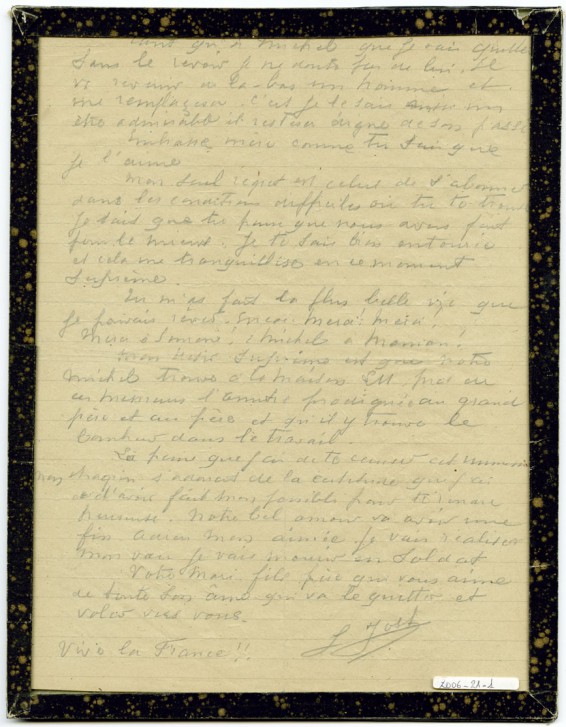 tant qu'à Michel que je vais quitter
sans le revoir je ne doute pas de lui. Il
va revenir de la-bas un homme et
me remplacer. C'est je le sais un
être admirable et restera digne de son passé
Embrasse mère comme tu sais que
je l'aime
Mon seul regret est celui de t'abonner
dans les conditions difficiles où tu te trouves
Je sais que tu que nous avons fait
pour le mieux. Je te sais bien entourée
et cela me tranquillise en ce moment
suprême.
Tu m'as fait la plus belle vie que
je pouvais rêver. Encore merci! merci!
Merci à Simone! à Michel à Maman!
Mon désir suprême est que notre
Michel trouve à la maison
ces messieurs l'amitié prodiguée au grand
père et au père et qu'il y trouve le
bonheur dans le travail.
La peine que j'ai de te causer est immense
mon chagrin s'adoucit de la certitude que j'ai
d'avoir fait mon possible pour te rendre
heureuse. Notre bel amour va avoir une
fin adieu mon aimée je vais réaliser
mon vœu je vais mourir en soldat
Votre mari, fils, père qui vous aime
de toute son âme qui va le quitter et
voler vers vous.
Vive la France!!
2006-21-1